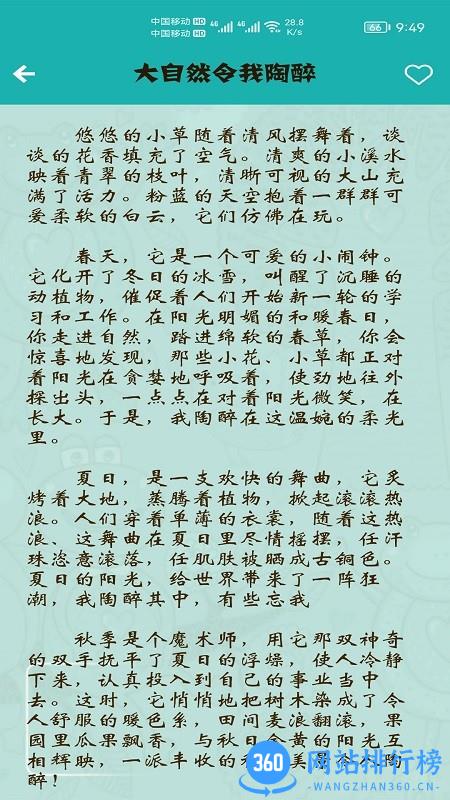 中国移动 HD 4G 4G 28.8 K/s 66 9:49
中国移动 HD
大自然令我陶醉
悠悠的小草随着清风摆舞着，谈
谈的花香填充了空气。清爽的小溪水
映着青翠的枝叶，清晰可视的大山充
满了活力。粉蓝的天空抱着一群群可
爱柔软的白云，它们仿佛在玩。
春天，它是一个可爱的小闹钟。
它化开了冬日的冰雪，叫醒了沉睡的
动植物，催促着人们开始新一轮的学
习和工作。在阳光明媚的和暖春日，
你走进自然，踏进绵软的春草，你会
惊喜地发现，那些小花、小草都正对
着阳光在贪婪地呼吸着，使劲地往外
探出头，一点点在对着阳光微笑，在
长大。于是，我陶醉在这温婉的柔光
里。
夏日，是一支欢快的舞曲，它炙
烤着大地，蒸腾着植物，掀起滚滚热
浪。人们穿着单薄的衣裳，随着这热
浪、这舞曲在夏日里尽情摇摆，任汗
珠恣意滚落，任肌肤被晒成古铜色。
夏日的阳光，给世界带来了一阵狂
潮，我陶醉其中，有些忘我
秋季是个魔术师，用它那双神奇
的双手抚平了夏日的浮燥，使人冷静
下来，认真投入到自己的事业当中
去。这时，它悄悄地把树木染成了令
人舒服的暖色系，田间麦浪翻滚，果
园里瓜果飘香，与秋日金黄的阳光互
相辉映，一派丰收的
醉！
360 网站排行榜
WANGZHAN360.CN